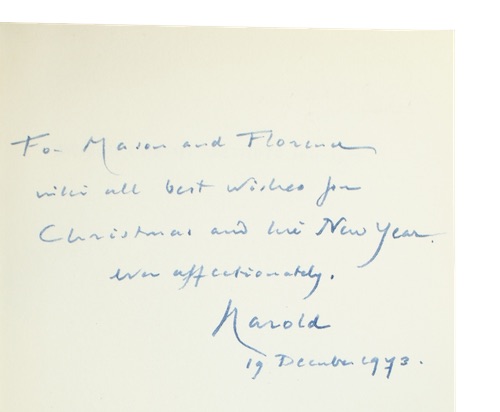 For Mason and Florence
with all best wishes for
Christmas and the New Year.
ever affectionately.
Harold
19 December 1973.